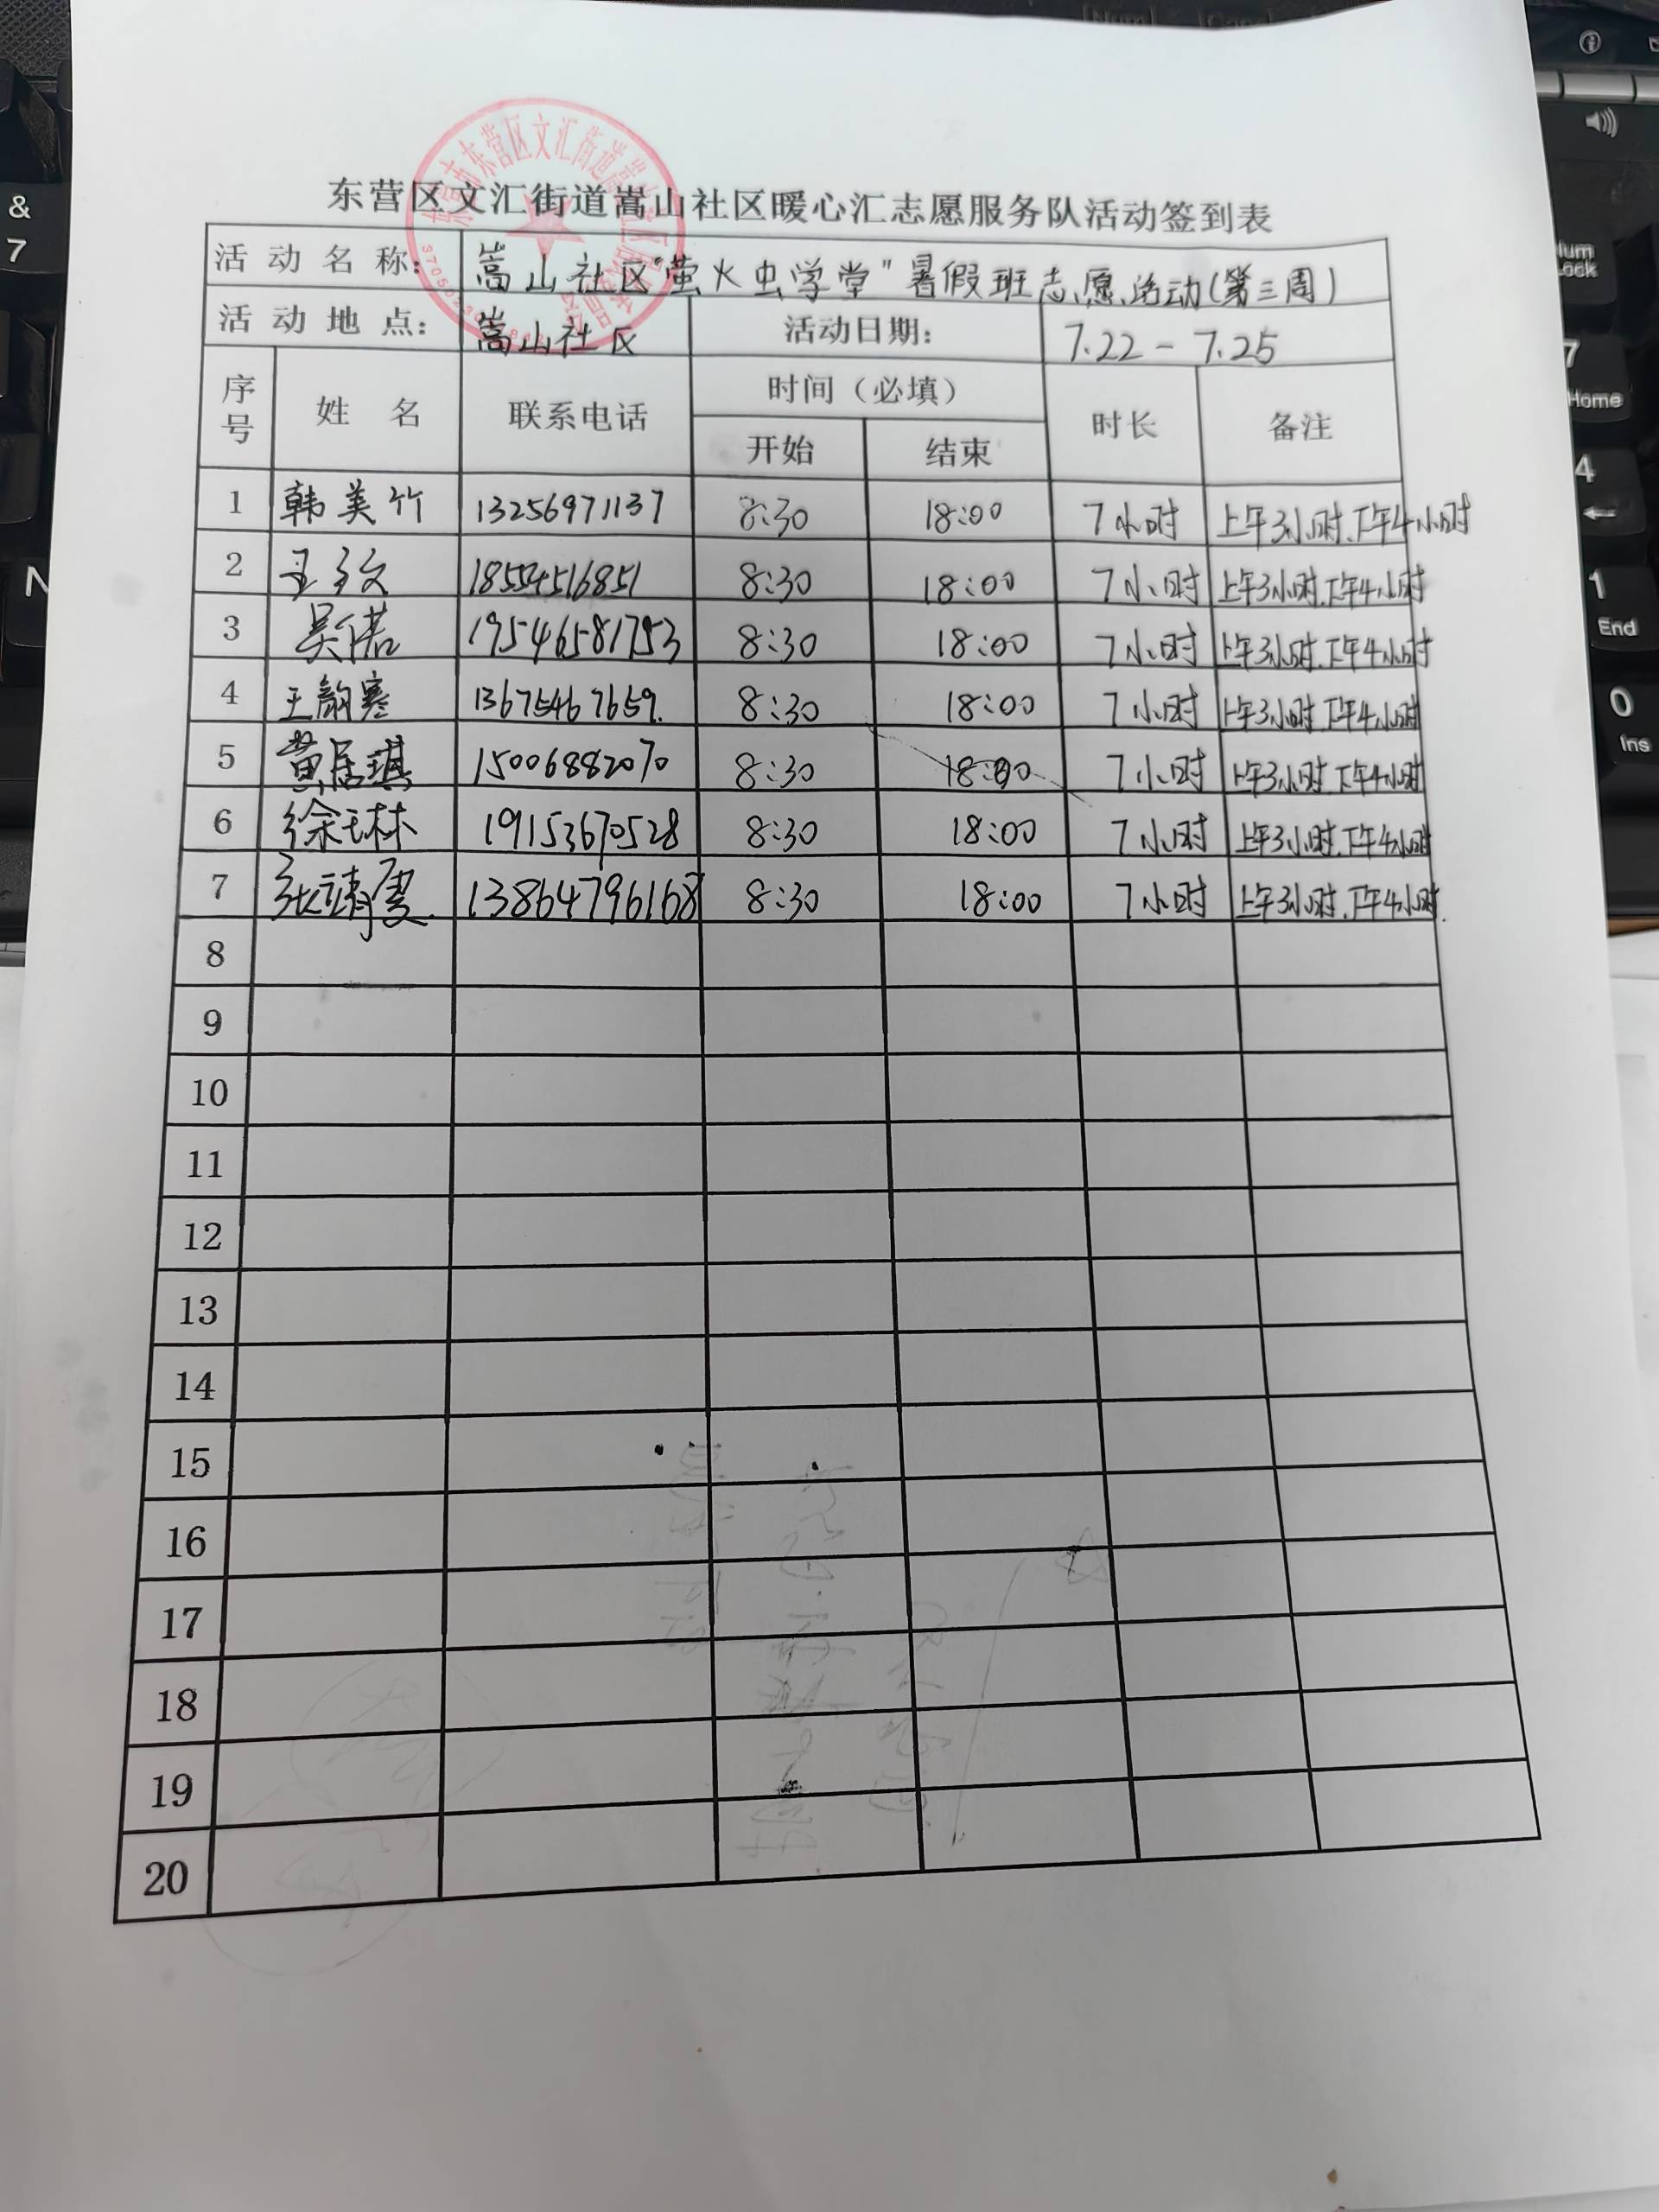 东营区文汇街道嵩山社区暖心汇志愿服务队活动签到表
活动名称: 嵩山社区"萤火虫学堂"暑假班志愿活动(第三周)
活动地点: 嵩山社区 活动日期: 7.22-7.25
序号 姓名 联系电话 时间(必填) 时长 备注
开始 结束
1 韩美竹 13256971137 8:30 18:00 7小时 上午3小时.下午4小时
2 18554516851 8:30 18:00 7小时 上午3小时.下午4小时
3 吴偌 19546581753 8:30 18:00 7小时 上午3小时.下午4小时
4 王韵寒 13675467659. 8:30 18:00 7小时 上午3小时.下午4小时
5 黄居琪 15006882070 8:30 18:00 7小时 上午3小时.下午4小时
6 徐玉林 19153670528 8:30 18:00 7小时 上午3小时.下午4小时
7 张靖 13864796168 8:30 18:00 7小时 上午3小时.下午4小时.
8
9
10
11
12
13
14
15
16
17
18
19
20
&
7
Num
Lock
7
Home
4
1
End
0
Ins